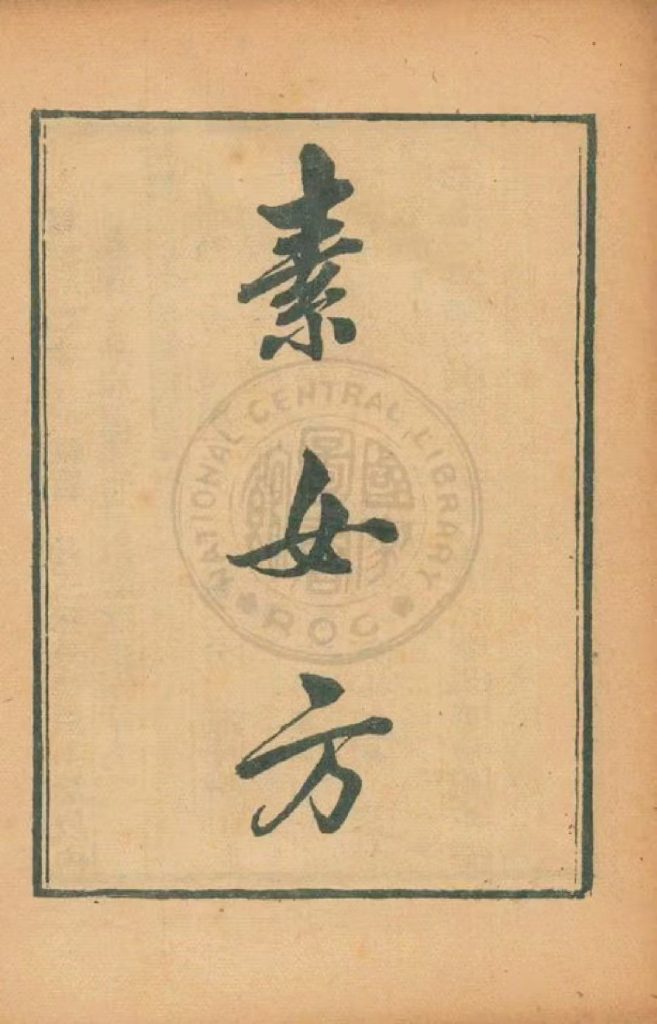 素女方
NATIONAL CENTRAL LIBRARY
ROC